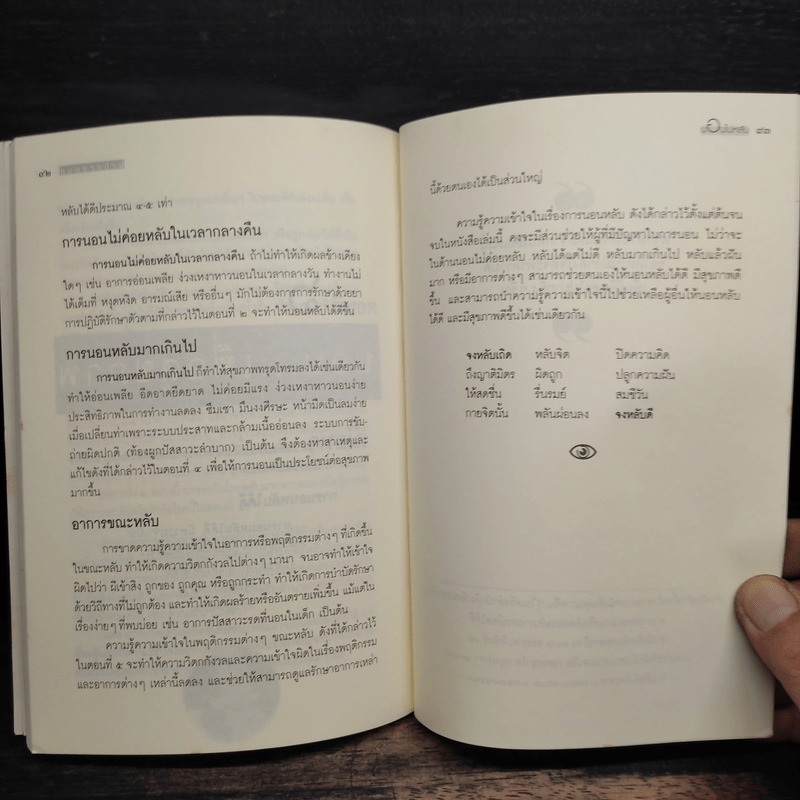 ๙๒
หลับได้ดีประมาณ ๔-๕ เท่า
การนอนไม่ค่อยหลับในเวลากลางคืน
การนอนไม่ค่อยหลับในเวลากลางคืน ถ้าไม่ทำให้เกิดผลข้างเคียง
ใดๆ เช่น อาการอ่อนเพลีย ง่วงเหงาหาวนอนในเวลากลางวัน ทำงานไม่
ได้เต็มที่ หงุดหงิด อารมณ์เสีย หรืออื่นๆ มักไม่ต้องการการรักษาด้วยยา
การปฏิบัติรักษาตัวตามที่กล่าวไว้ในตอนที่ ๒ จะทำให้นอนหลับได้ดีขึ้น
การนอนหลับมากเกินไป
การนอนหลับมากเกินไป ก็ทำให้สุขภาพทรุดโทรมลงได้เช่นเดียวกัน
ทำให้อ่อนเพลีย อืดอาดยืดยาด ไม่ค่อยมีแรง ง่วงเหงาหาวนอนง่าย
ประสิทธิภาพในการทำงานลดลง ซึมเซา มึนงงศีรษะ หน้ามืดเป็นลมง่าย
เมื่อเปลี่ยนท่าเพราะระบบประสาทและกล้ามเนื้ออ่อนลง ระบบการขับ-
ถ่ายผิดปกติ (ท้องผูกปัสสาวะลำบาก) เป็นต้น จึงต้องหาสาเหตุและ
แก้ไขดังที่ได้กล่าวไว้ในตอนที่ ๔ เพื่อให้การนอนเป็นประโยชน์ต่อสุขภาพ
มากขึ้น
อาการขณะหลับ
การขาดความรู้ความเข้าใจในอาการหรือพฤติกรรมต่างๆ ที่เกิดขึ้น
ในขณะหลับ ทำให้เกิดความวิตกกังวลไปต่างๆ นานา จนอาจทำให้เข้าใจ
ผิดไปว่า ผีเข้าสิง ถูกของ ถูกคุณ หรือถูกกระทำ ทำให้เกิดการบำบัดรักษา
ด้วยวิธีทางที่ไม่ถูกต้อง และทำให้เกิดผลร้ายหรืออันตรายเพิ่มขึ้น แม้แต่ใน
เรื่องง่ายๆ ที่พบบ่อย เช่น อาการปัสสาวะรดที่นอนในเด็ก เป็นต้น
ความรู้ความเข้าใจในพฤติกรรมต่างๆ ขณะหลับ ดังที่ได้กล่าวไว้
ในตอนที่ ๕ จะทำให้ความวิตกกังวลและความเข้าใจผิดในเรื่องพฤติกรรม
และอาการต่างๆ เหล่านี้ลดลง และช่วยให้สามารถดูแลรักษาอาการเหล่า
๙๓
นี้ด้วยตนเองได้เป็นส่วนใหญ่
ความรู้ความเข้าใจในเรื่องการนอนหลับ ดังได้กล่าวไว้ตั้งแต่ต้นจน
จบในหนังสือเล่มนี้ คงจะมีส่วนช่วยให้ผู้ที่มีปัญหาในการนอน ไม่ว่าจะ
ในด้านนอนไม่ค่อยหลับ หลับได้แต่ไม่ดี หลับมากเกินไป หลับแล้วฝัน
มาก หรือมีอาการต่างๆ สามารถช่วยตนเองให้นอนหลับได้ดี มีสุขภาพดี
ขึ้น และสามารถนำความรู้ความเข้าใจนี้ไปช่วยเหลือผู้อื่นให้นอนหลับ
ได้ดี และมีสุขภาพดีขึ้นได้เช่นเดียวกัน
จงหลับเถิด หลับจิต ปิดความคิด
ถึงญาติมิตร ผิดถูก ปลูกความฝัน
ให้สดชื่น รื่นรมย์ สมชีวัน
กายจิตนั้น พลันผ่อนลง จงหลับดี